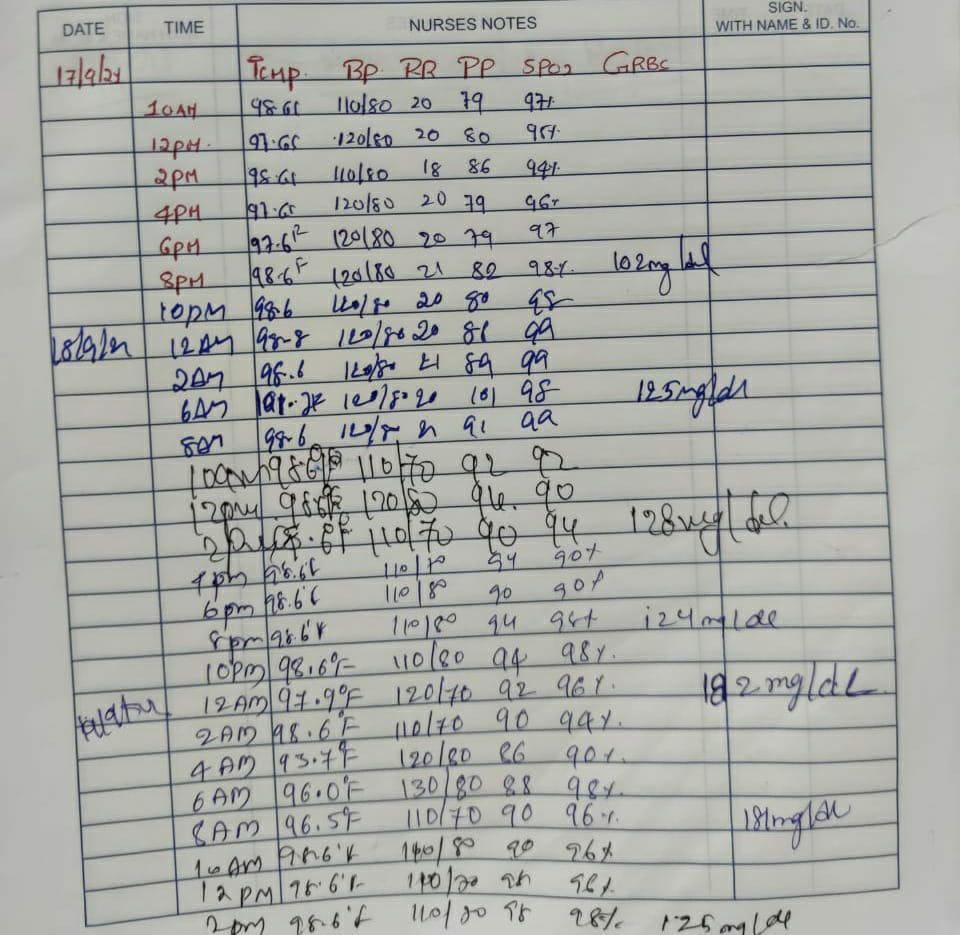 DATE TIME NURSES NOTES SIGN. WITH NAME & ID. No.
17/9/21 Temp. BP RR PP SPO2 GRBC
10AM 98.6F 110/80 20 79 97%
12PM. 97.6F 120/80 20 80 95%
2PM 98.6F 110/80 18 86 94%
4PM 97.6F 120/80 20 79 96%
6PM 97.6F 120/80 20 79 97
8PM 98.6F 120/80 21 82 98% 102mg/dl
10PM 98.6 120/80 20 80 98
18/9/21 12AM 98.8 120/80 20 86 99
2AM 98.6 120/80 21 89 99
6AM 120/80 20 101 98 125mg/dl
8AM 98.6 21 91 99
10am 110/70 92 92
12pm 120/80 94. 90
110/70 90 94 128mg/dl.
4pm 98.6F 110/70 94 90%
6pm 98.6F 110/80 90 90%
8pm 98.6F 110/80 94 98% 124mg/dl
10PM 98.6°F 110/80 94 98%.
12AM 97.9°F 120/70 92 96%. 182mg/dL
2AM 98.6°F 110/70 90 94%.
4AM 93.7°F 120/80 86 90%.
6AM 96.0°F 130/80 88 98%.
8AM 96.5°F 110/70 90 96%. 181mg/dl
10AM 98.6°F 80 90 96%
12PM 98.6°F 98 98%
2pm 98.6°F 98 98% 125mg/dl